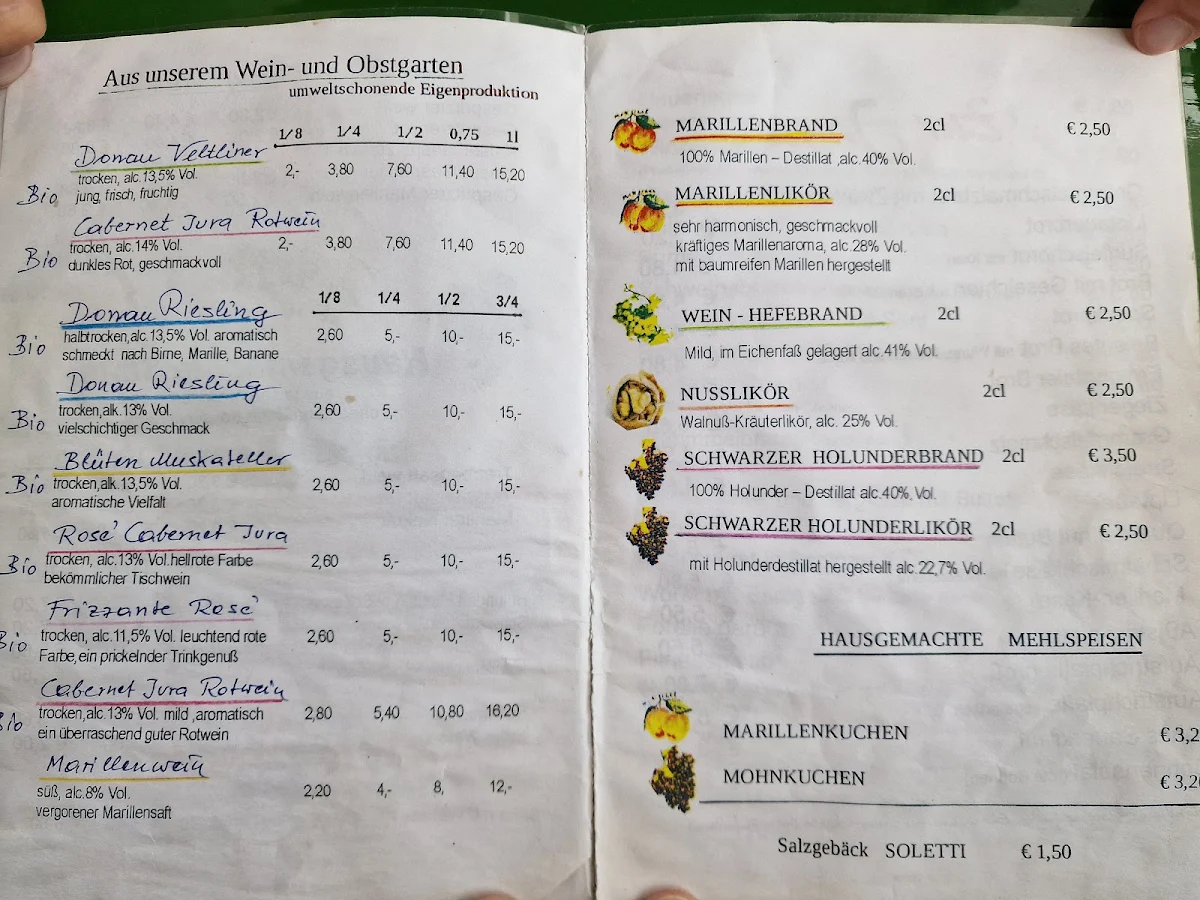 Aus unserem Wein- und Obstgarten
umweltschonende Eigenproduktion
1/8 1/4 1/2 0,75 1l
Donau Veltliner
trocken, alc.13,5% Vol. 2,- 3,80 7,60 11,40 15,20
Bio jung, frisch, fruchtig
Cabernet Jura Rotwein
trocken, alc.14% Vol. 2,- 3,80 7,60 11,40 15,20
Bio dunkles Rot, geschmackvoll
1/8 1/4 1/2 3/4
Donau Riesling
halbtrocken,alc.13,5% Vol. aromatisch 2,60 5,- 10,- 15,-
Bio schmeckt nach Birne, Marille, Banane
Donau Riesling
trocken,alk.13% Vol. 2,60 5,- 10,- 15,-
Bio vielschichtiger Geschmack
Blüten Muskateller
Bio trocken,alk.13,5% Vol. 2,60 5,- 10,- 15,-
aromatische Vielfalt
Rosé Cabernet Jura
Bio trocken, alc.13% Vol.hellrote Farbe 2,60 5,- 10,- 15,-
bekömmlicher Tischwein
Frizzante Rosé
Bio trocken, alc.11,5% Vol. leuchtend rote 2,60 5,- 10,- 15,-
Farbe,ein prickelnder Trinkgenuß
Cabernet Jura Rotwein
Bio trocken,alc.13% Vol. mild ,aromatisch 2,80 5,40 10,80 16,20
ein überraschend guter Rotwein
Marillenwein
süß, alc.8% Vol. 2,20 4,- 8, 12,-
vergorener Marillensaft
MARILLENBRAND 2cl € 2,50
100% Marillen – Destillat ,alc.40% Vol.
MARILLENLIKÖR 2cl € 2,50
sehr harmonisch, geschmackvoll
kräftiges Marillenaroma, alc.28% Vol.
mit baumreifen Marillen hergestellt
WEIN - HEFEBRAND 2cl € 2,50
Mild, im Eichenfaß gelagert alc.41% Vol.
NUSSLIKÖR 2cl € 2,50
Walnuß-Kräuterlikör, alc. 25% Vol.
SCHWARZER HOLUNDERBRAND 2cl € 3,50
100% Holunder – Destillat alc.40%, Vol.
SCHWARZER HOLUNDERLIKÖR 2cl € 2,50
mit Holunderdestillat hergestellt alc.22,7% Vol.
HAUSGEMACHTE MEHLSPEISEN
MARILLENKUCHEN € 3,2
MOHNKUCHEN € 3,20
Salzgebäck SOLETTI € 1,50